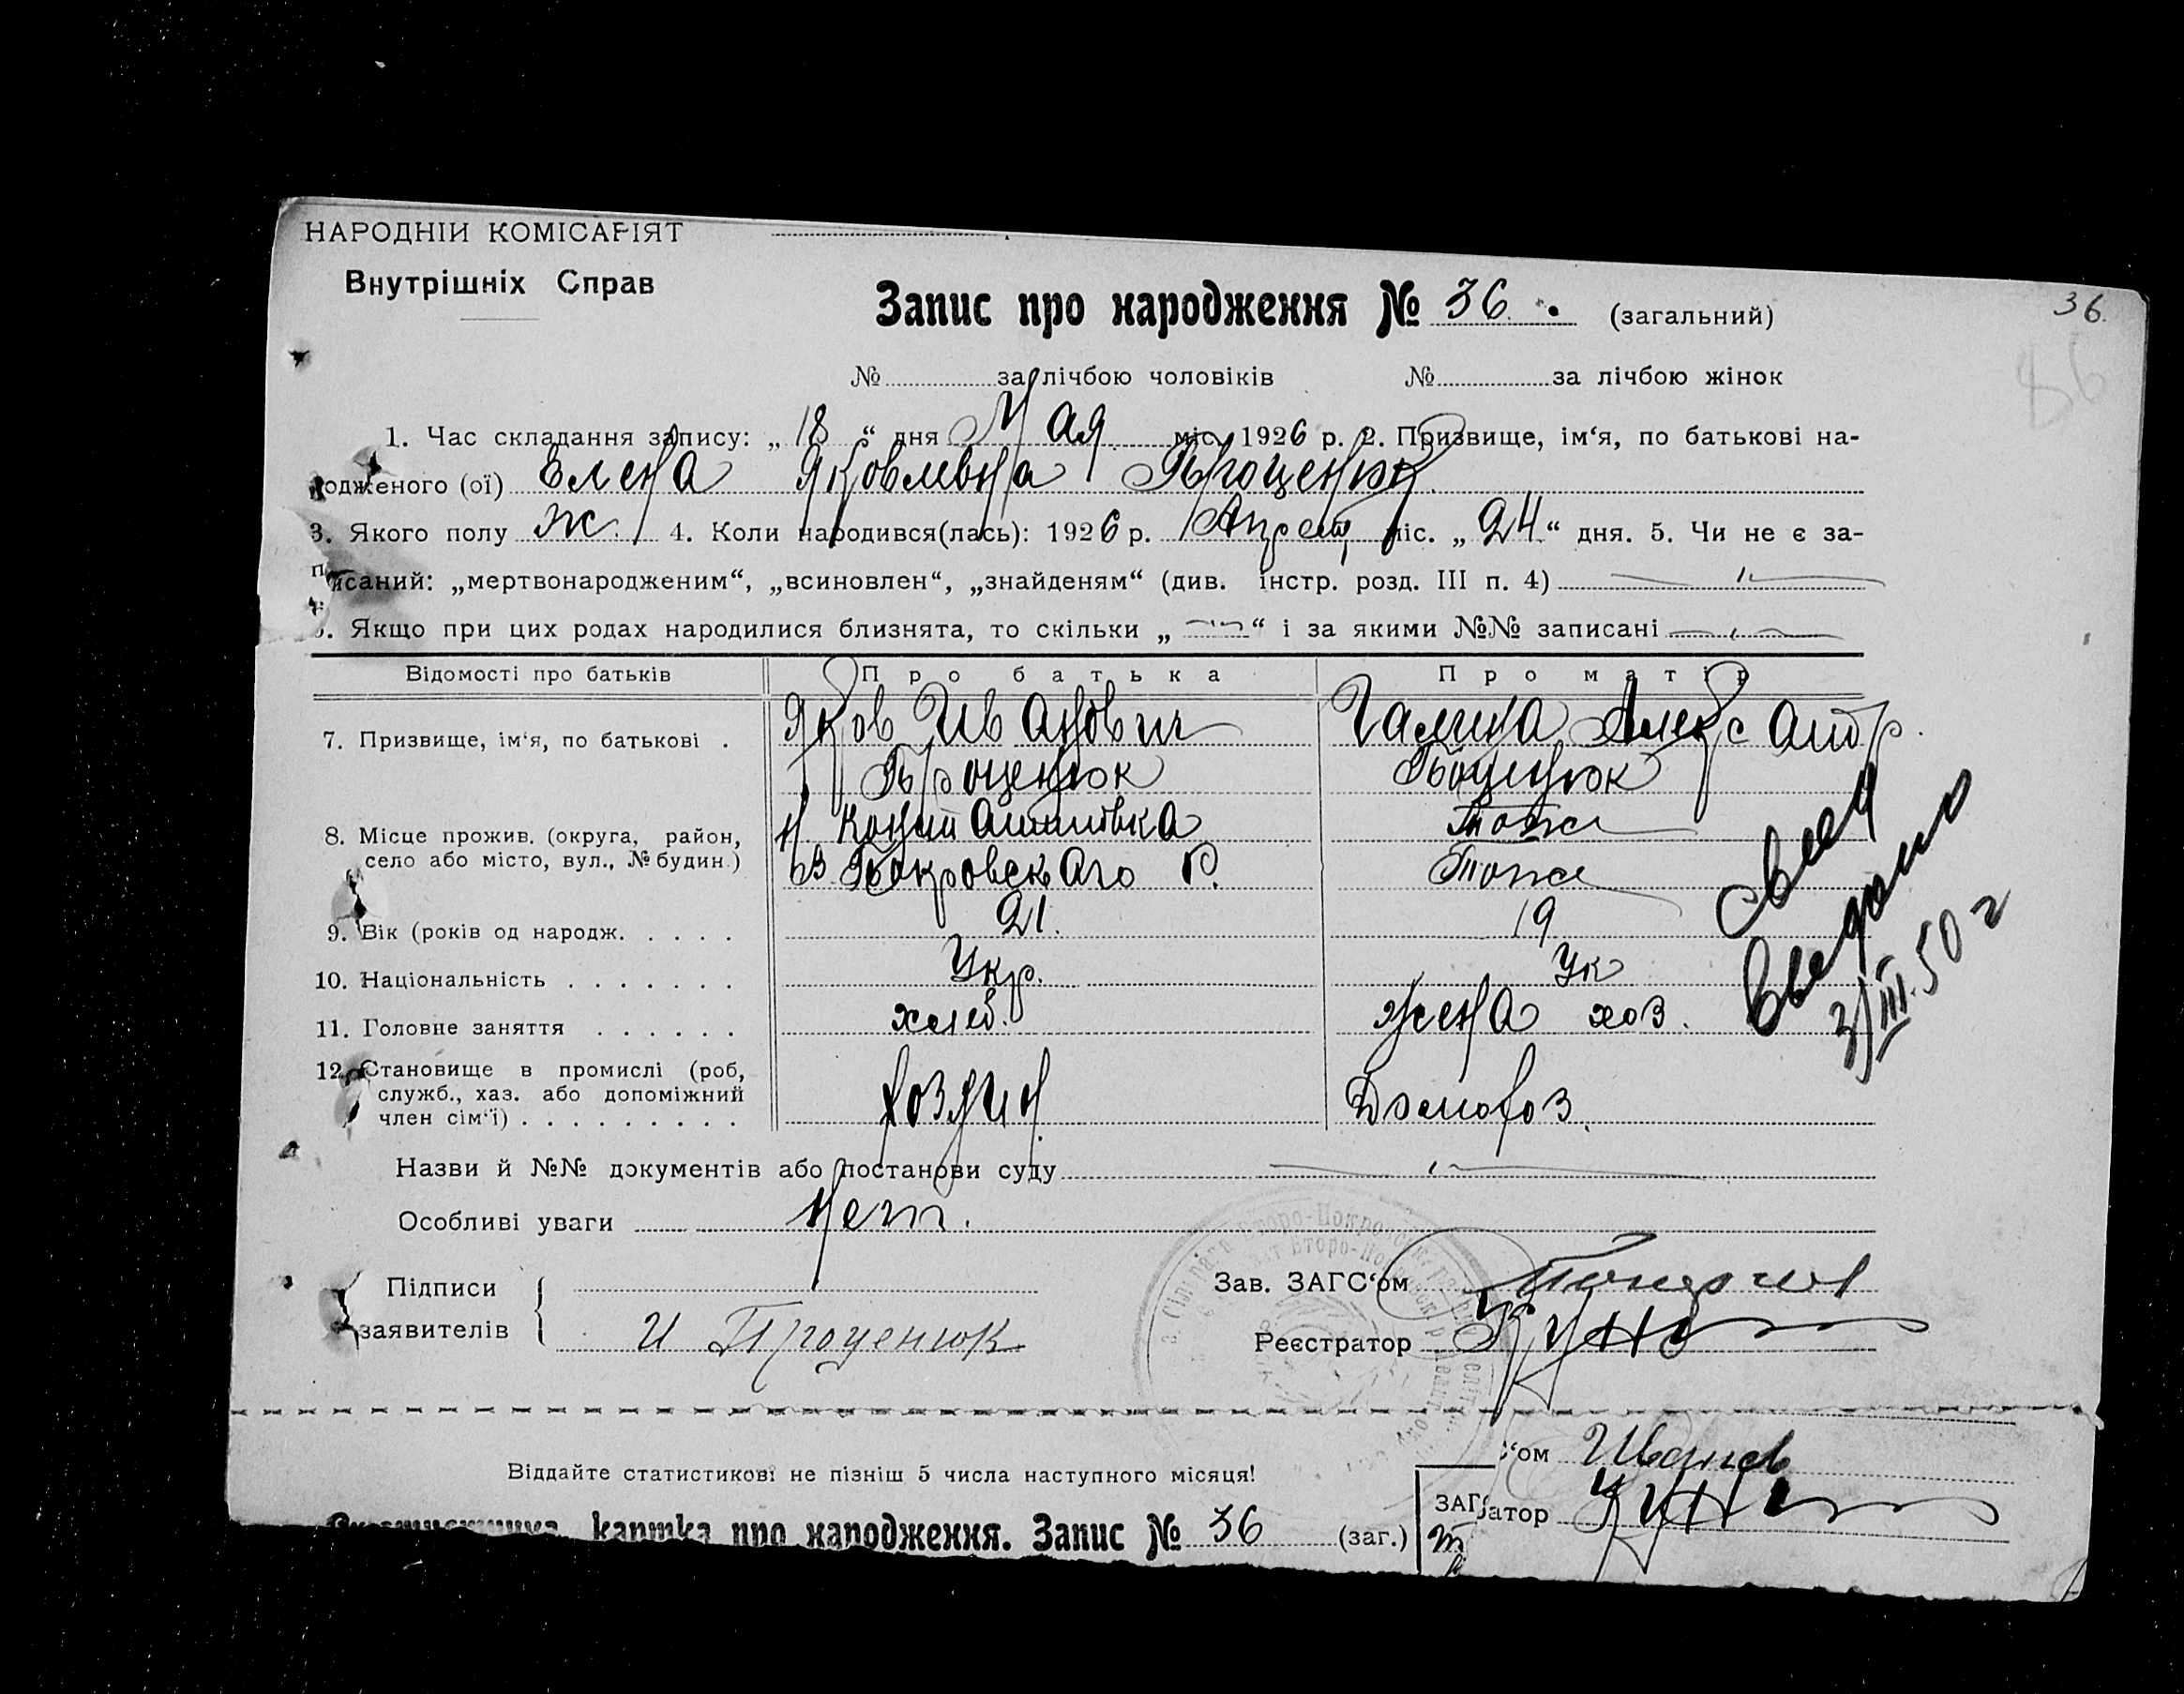 НАРОДНІЙ КОМІСАРІЯТ
Внутрішніх Справ
Запис про народження № 36. (загальний)
36.
№ за лічбою чоловіків № за лічбою жінок
1. Час складання запису: „ 18 “ дня Мая міс. 1926 р. 2. Призвище, ім‘я, по батькові на-
родженого (ої) Елена Яковлевна Проценюк
3. Якого полу ж. 4. Коли народився(лась): 1926 р. Апреля міс. „ 24 “ дня. 5. Чи не є за-
писаний: „мертвонародженим“, „всиновлен“, „знайденям“ (див. інстр. розд. III п. 4)
6. Якщо при цих родах народилися близнята, то скільки „ “ і за якими №№ записані
Відомості про батьків Про батька Про матір
7. Призвище, ім‘я, по батькові . Яков Иванович Галина Александр.
Проценюк Проценюк
8. Місце прожив. (округа, район, Тоже
село або місто, вул., № будин.) В Покровскаго Р. Тоже
9. Вік (років од народж. . . . . 21. 19
10. Національність . . . . . . . Укр. Ук
11. Головне заняття . . . . . . хлеб. жена хоз.
12. Становище в промислі (роб,
служб., хаз. або допоміжний хозяин Домохоз.
член сім‘ї) . . . . . . . . .
выдано
3/III.50 г
Назви й №№ документів або постанови суду
Особливі уваги Нет.
Підписи Зав. ЗАГС‘ом
заявителів И Проценюк Реєстратор
‘ом Иванов
Віддайте статистикові не пізніш 5 числа наступного місяця!
ЗАГ атор
картка про народження. Запис № 36 (заг.)